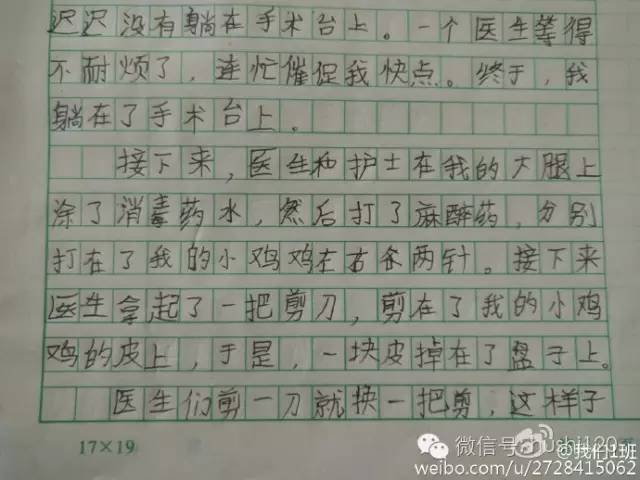 迟迟没有躺在手术台上。一个医生等得
不耐烦了，连忙催促我快点。终于，我
躺在了手术台上。
接下来，医生和护士在我的大腿上
涂了消毒药水，然后打了麻醉药，分别
打在了我的小鸡鸡左右各两针。接下来
医生拿起了一把剪刀，剪在了我的小鸡
鸡的皮上，于是，一块皮掉在了盘子上。
医生们剪一刀就换一把剪，这样子
17×19
微信号
@我们1班
weibo.com/u/2728415062